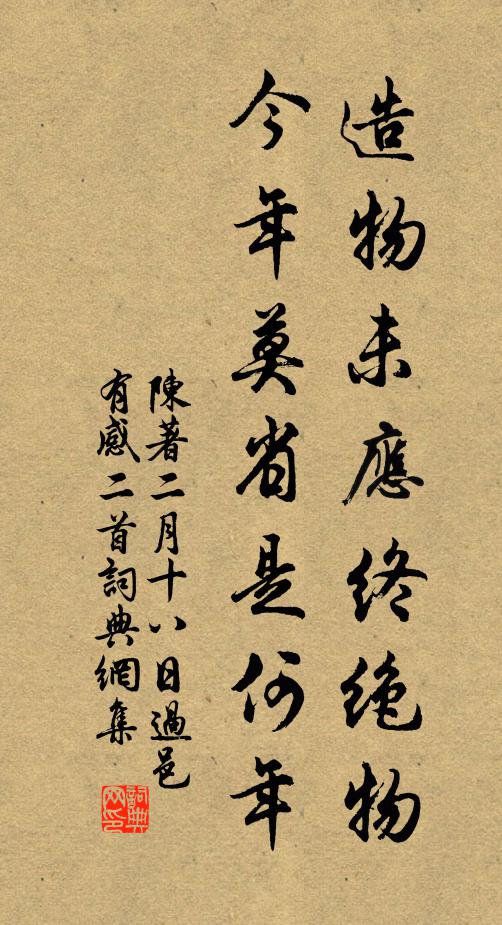 造物未應終絶物
今年莫省是何年
陳著二月十八日過邑
有感二首詞典網集
詞典
网印